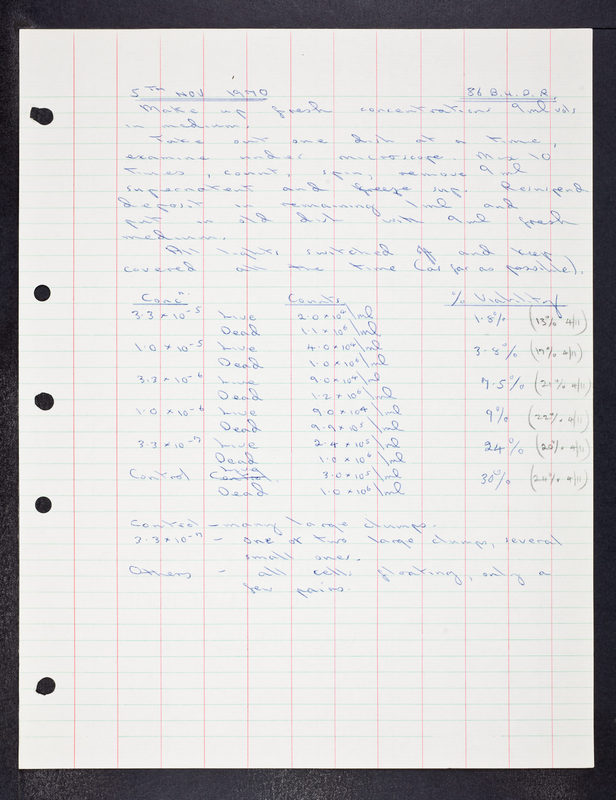 5TH NOV 1970 36 B.U.D.R.
Make up fresh concentrations 9ml vols
in medium.
Take out one dish at a time,
examine under microscope. Mix 10
times, count, spin, remove 9ml
supernatent and freeze sup. Resuspend
deposit in remaining 1ml and
put in old dish with 9ml fresh
medium.
All lights switched off and keep
covered all the time (as far as possible).
Concn. Counts % Viability
3.3 x 10-5 Live 2.0 x 104/ml 1.8% (13% 4/11)
Dead 1.1 x 106/ml
1.0 x 10-5 Live 4.0 x 104/ml 3.8% (17% 4/11)
Dead 1.0 x 106/ml
3.3 x 10-6 Live 9.0 x 104/ml 7.5% (21% 4/11)
Dead 1.2 x 106/ml
1.0 x 10-6 Live 9.0 x 104/ml 9% (22% 4/11)
Dead 9.9 x 105/ml
3.3 x 10-7 Live 2.4 x 105/ml 24% (20% 4/11)
Dead 1.0 x 106/ml
Control Control Live 3.0 x 105/ml 30% (24% 4/11)
Dead 1.0 x 106/ml
Control - many large clumps.
3.3 x 10-7 - one or two large clumps, several
small ones.
Others - all cells floating, only a
few pairs.